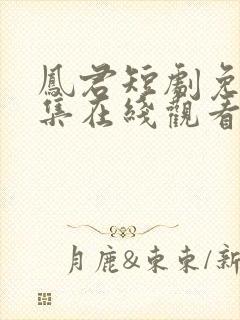 鳳君短劇免
集在綫觀看
月鹿&東東/新